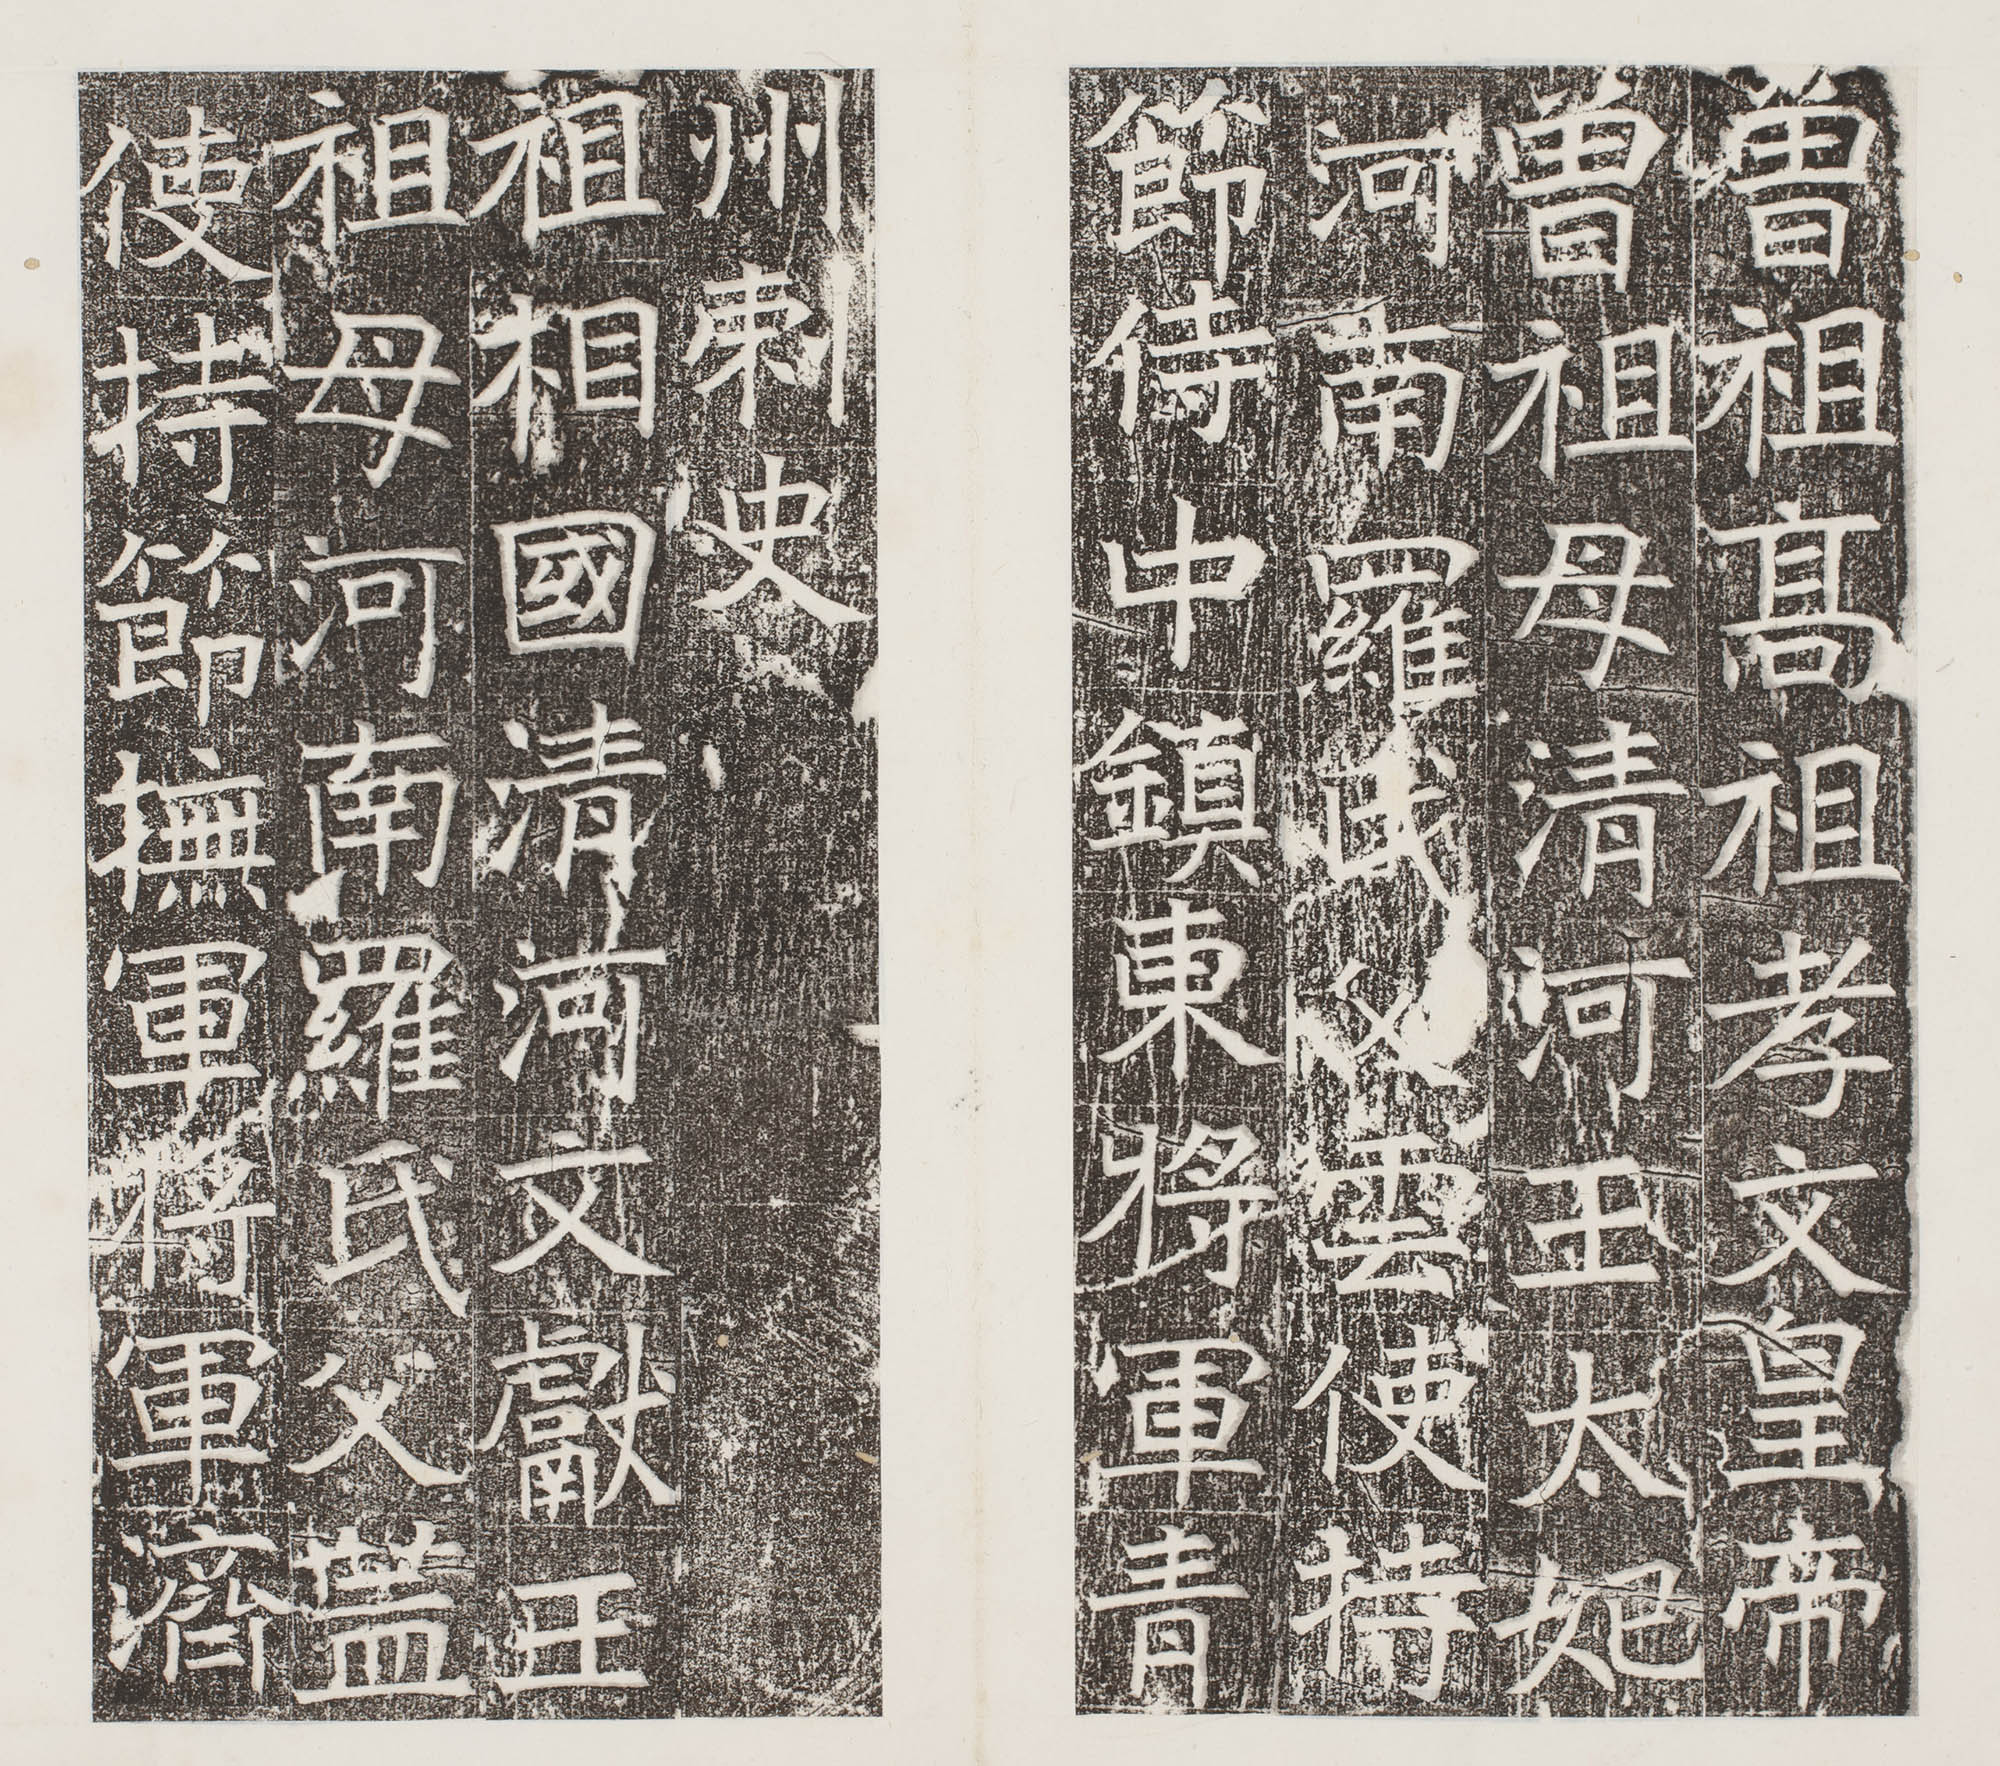 曾祖髙祖孝文皇帝
曾祖母清河王太妃
河南羅氏父雲使持
節侍中鎮東將軍青
州刺史
祖相國清河文獻王
祖母河南羅氏父蓋
使持節撫軍將軍濟